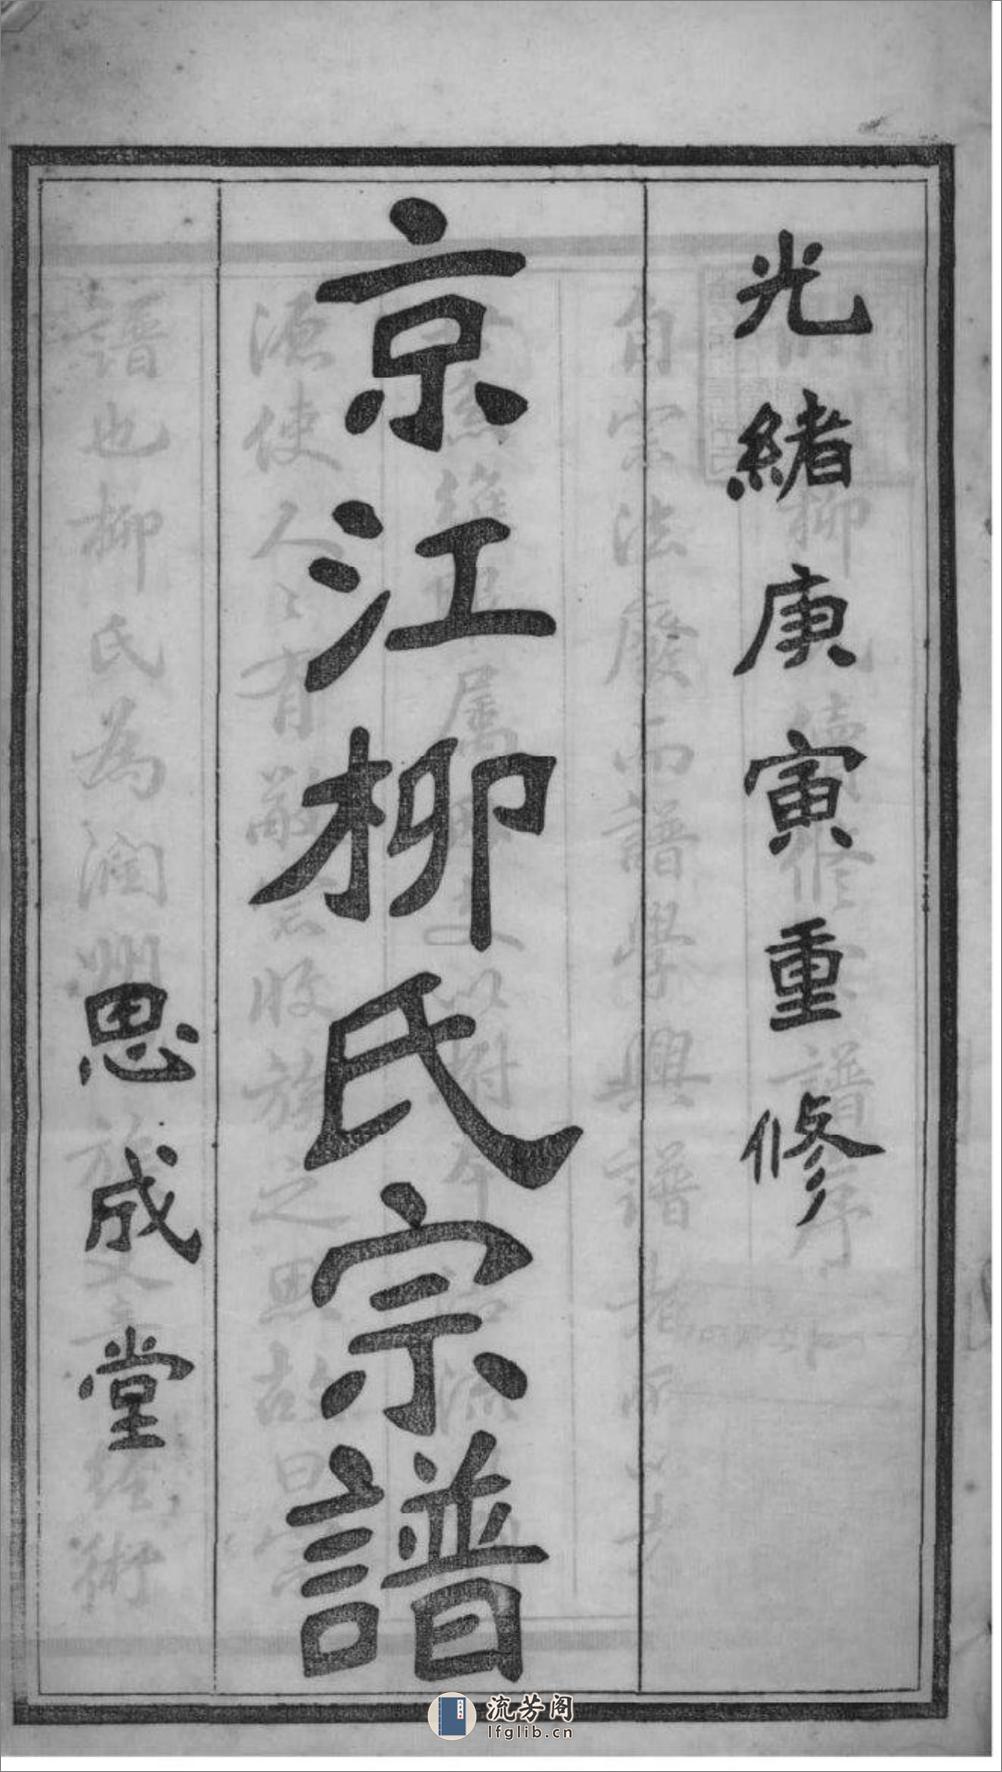 光緒庚寅重修
京江柳氏宗譜
思成堂
流芳阁
lfglib.cn